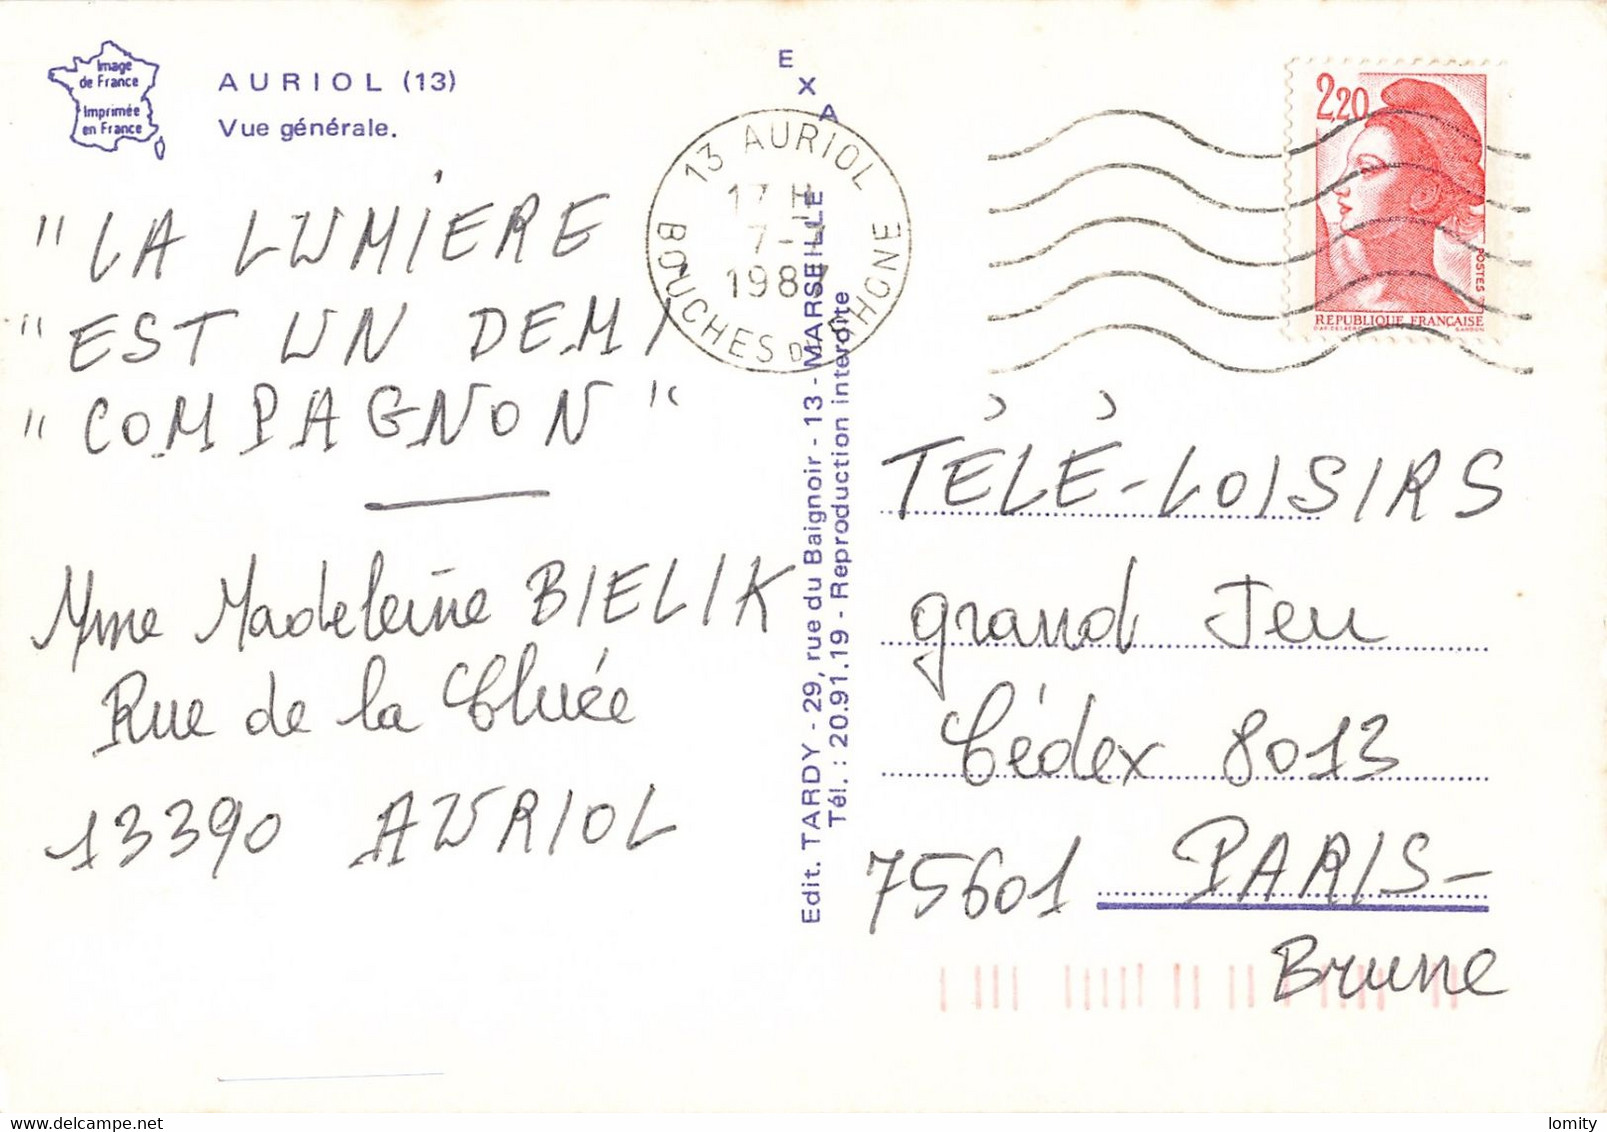 Image
de France
Imprimée
en France
AURIOL (13)
Vue générale.
" LA LUMIERE
" EST UN DEMI
" COMPAGNON "
Mme Madeleine BIELIK
Rue de la
13390 AURIOL
EXA
Edit. TARDY - 29, rue du Baignoir - 13 - MARSEILLE
Tél. : 20.91.19 - Reproduction interdite
13 AURIOL
17 H
7-
1987
BOUCHES DU RHONE
2,20
POSTES
REPUBLIQUE FRANÇAISE
TÉLÉ-LOISIRS
grand Jeu
Cédex 8013
75601 PARIS-
Brune
lomity